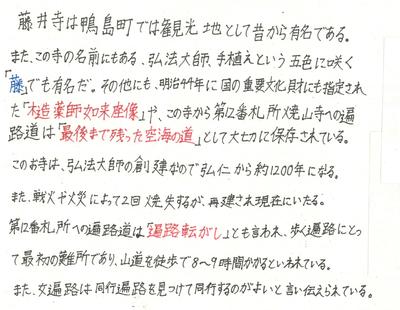 藤井寺は鴨島町では観光地として昔から有名である。
また、この寺の名前にもある、弘法大師、手植えという五色に咲く
「藤」でも有名だ。その他にも、明治44年に国の重要文化財にも指定され
た「木造薬師如来座像」や、この寺から第12番札所焼山寺への遍
路道は「最後まで残った空海の道」として大切に保存されている。
このお寺は、弘法大師の創建なので弘仁から約1200年になる。
また、戦火や火災によって2回焼失するが、再建され現在にいたる。
第12番札所への遍路道は「遍路転がし」とも言われ、歩く遍路にとっ
て最初の難所であり、山道を徒歩で8〜9時間かかるといわれている。
また、女遍路は同行遍路を見つけて同行するのがよいと言い伝えられている。